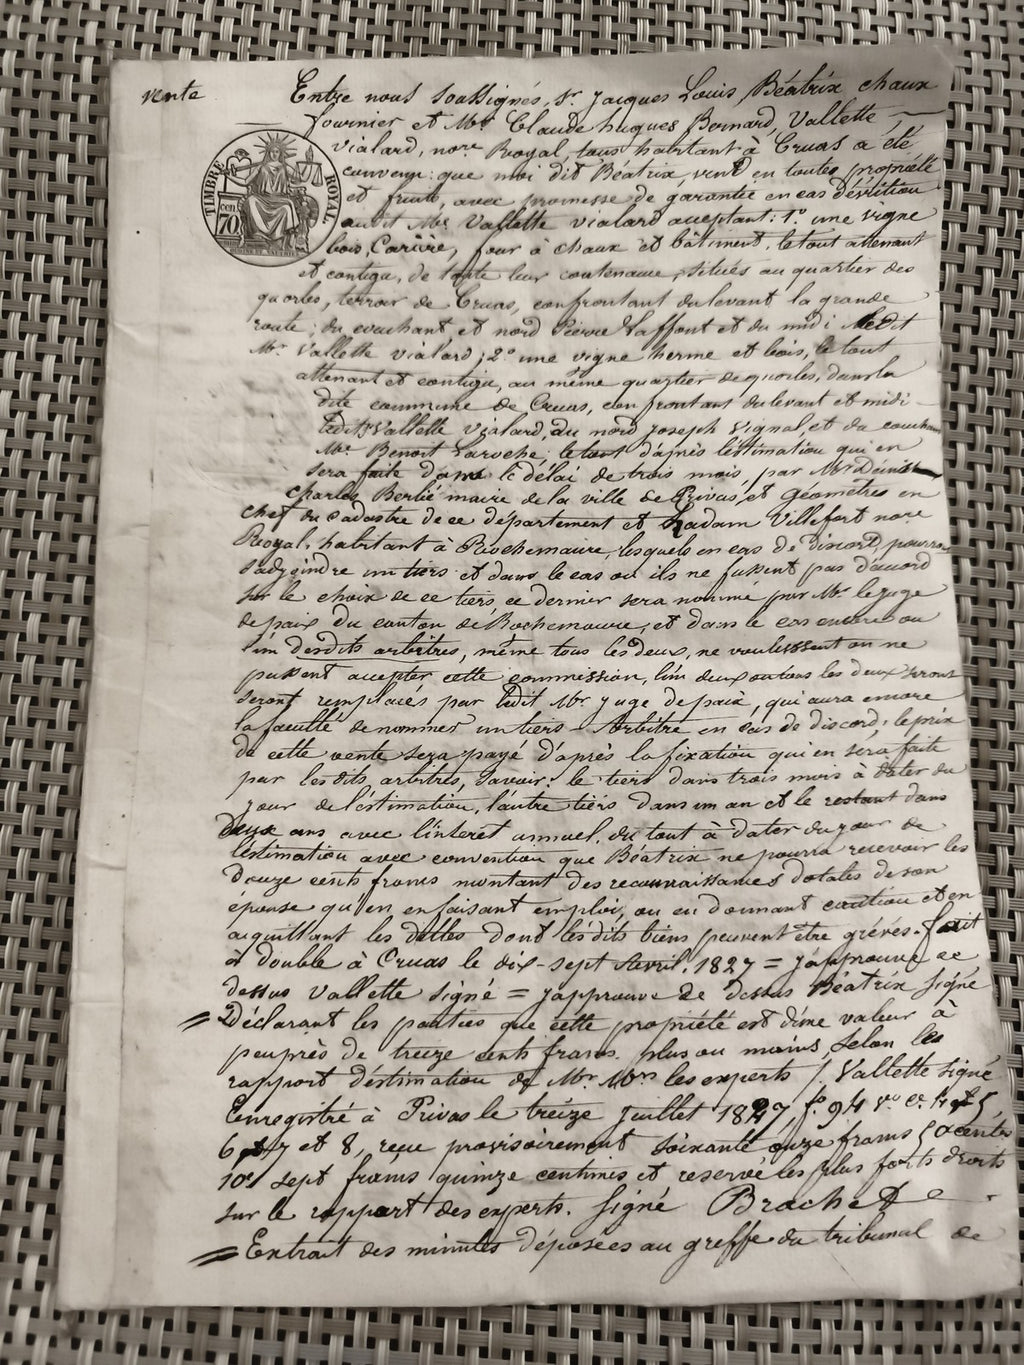 vente
Entre nous soussignés, Sr. Jacques Louis Béatrix chaux
fournier et Mr. Claude hugues Bernard Vallette
TIMBRE ROYAL
cen 70
vialard, nore Royal, tous habitant à Cruas a été
convenu: que moi dit Béatrix, vend en toutes propriété
et fruits, avec promesse de garantie en cas d'éviction
audit Mr. Vallette vialard acceptant: 1.° une vigne
bois, Carière, four à chaux et bâtiment, le tout attenant
et contigu, de toute leur contenance, situés au quartier des
quorles, terroir de Cruas, confrontant du levant la grande
route; du couchant et nord Pierre Laffont et du midi Medit
Mr. Vallette vialard; 2.° une vigne herme et bois, le tout
attenant et contigu, au même quartier de quorles, dans la
dite commune de Cruas, confrontant du levant et midi
ledit Vallette vialard, du nord Joseph Vignal et du couchant
Mr. Benoit Laroche; le tout d'après l'estimation qui en
sera faite dans le délai de trois mois, par Mr.
Charles Berlié maire de la ville de Privas, et géomètres en
chef du cadastre de ce département et hadam Villefort nore
Royal, habitant à Rochemaure, lesquels en cas de discord, pourront
s'adjoindre un tiers et dans le cas où ils ne fussent pas d'acord
sur le choix de ce tiers, ce dernier sera nommé par Mr. le juge
de paix du canton de Rochemaure, et dans le cas encore ou
l'un desdits arbitres, même tous les deux, ne voulussent ou ne
pussent accepter cette commission, l'un deux ou tous les deux seront
seront remplacés par ledit Mr. Juge de paix, qui aura encore
la faculté de nommer un tiers Arbitre en cas de discord; le prix
de cette vente sera payé d'après la fixation qui en sera faite
par lesdits arbitres, savoir: le tiers dans trois mois à dater du
jour de l'éstimation, l'autre tiers dans un an et le restant dans
deux ans avec l'interet annuel, du tout à dater du jour de
l'éstimation avec convention que Béatrix ne pourra recevoir les
douze cents francs montant des reconnaissances dotales de son
epouse qu'en en faisant emploi, ou en donnant caution et en
acquittant les dettes dont lesdits biens peuvent être grévés. fait
à double à Cruas le dix-sept Avril. 1827 = J'approuve ce
dessus Vallette signé = J'approuve ce dessus Béatrix signé
= Déclarant les parties que cette propriété est d'une valeur à
peuprès de treize cents francs. plus ou moins, selon les
rapport d'éstimation de Mr. Mrs les experts / Vallette signé
Enregistré à Privas le treize Juillet 1827, f.° 94 v.° c. 4 et 5,
6 et 7 et 8, reçu provisoirement soixante onze francs 50 centes
10e sept francs quinze centimes et reservé les plus forts droits
sur le rapport des experts. Signé Brachet
= Extrait des minutes déposées au greffe du tribunal de